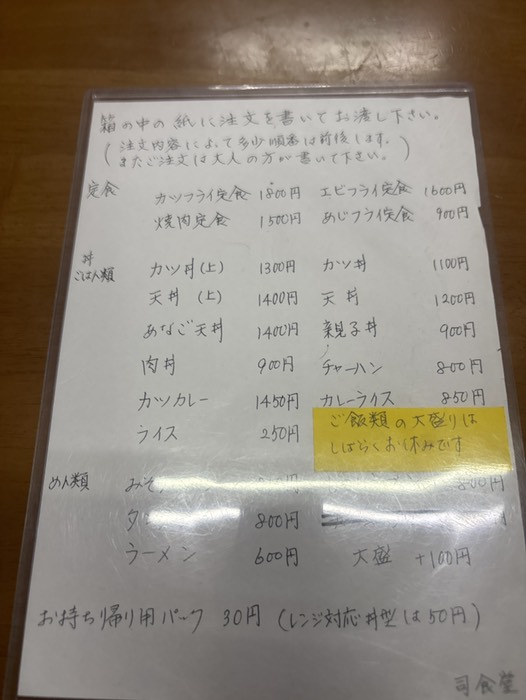 箱の中の紙に注文を書いてお渡し下さい。
(注文内容によって多少順番は前後します。
またご注文は大人の方が書いて下さい。)
定食 カツフライ定食 1800円 エビフライ定食 1600円
焼肉定食 1500円 あじフライ定食 900円
丼
ごはん類 カツ丼(上) 1300円 カツ丼 1100円
天丼(上) 1400円 天丼 1200円
あなご天丼 1400円 親子丼 900円
肉丼 900円 チャーハン 800円
カツカレー 1450円 カレーライス 850円
ライス 250円 ご飯類の大盛りは
しばらくお休みです
めん類 みそ 800円
800円
ラーメン 600円 大盛 +100円
お持ち帰り用パック 30円 (レンジ対応丼型は50円)
司食堂